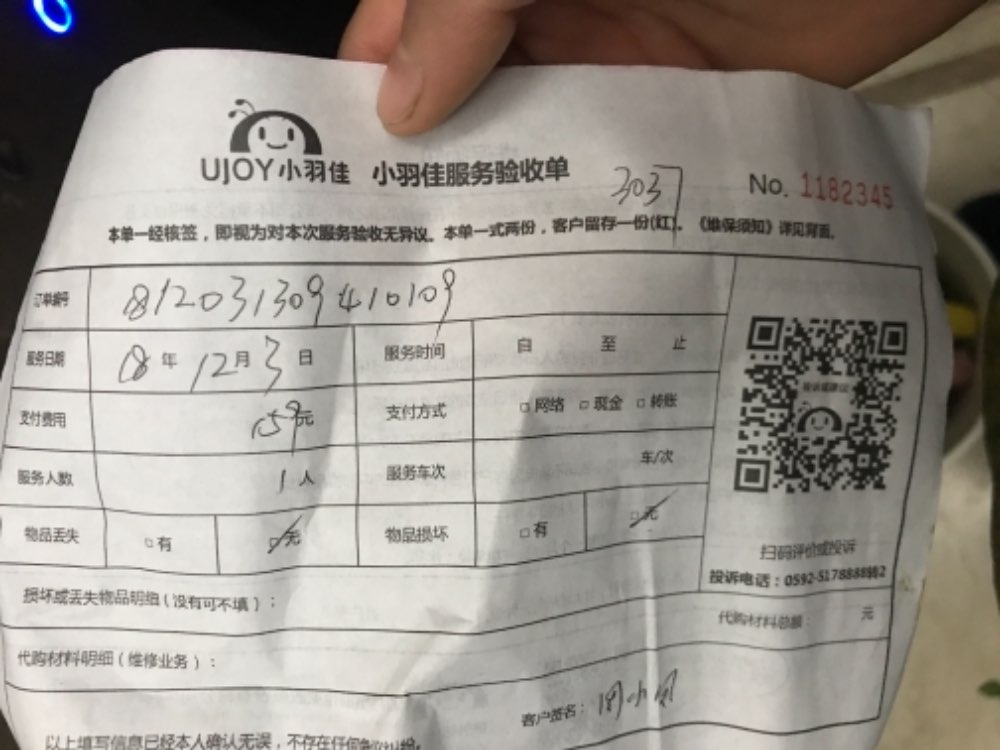 UJOY小羽佳 小羽佳服务验收单 3037 No. 1182345
本单一经核签，即视为对本次服务验收无异议。本单一式两份，客户留存一份(红)。《维保须知》详见背面。
订单编号 812031309410109
服务日期 18年12月3日 服务时间 自 至 止
支付费用 159元 支付方式 □网络 □现金 □转账
服务人数 1人 服务车次 车/次
物品丢失 □有 □无 物品损坏 □有 □无
扫码评价或投诉
投诉电话：0592-5178888转2
损坏或丢失物品明细（没有可不填）：
代购材料总额： 元
代购材料明细（维修业务）：
客户签名：周小凤
以上填写信息已经本人确认无误，不存在任何争议纠纷。